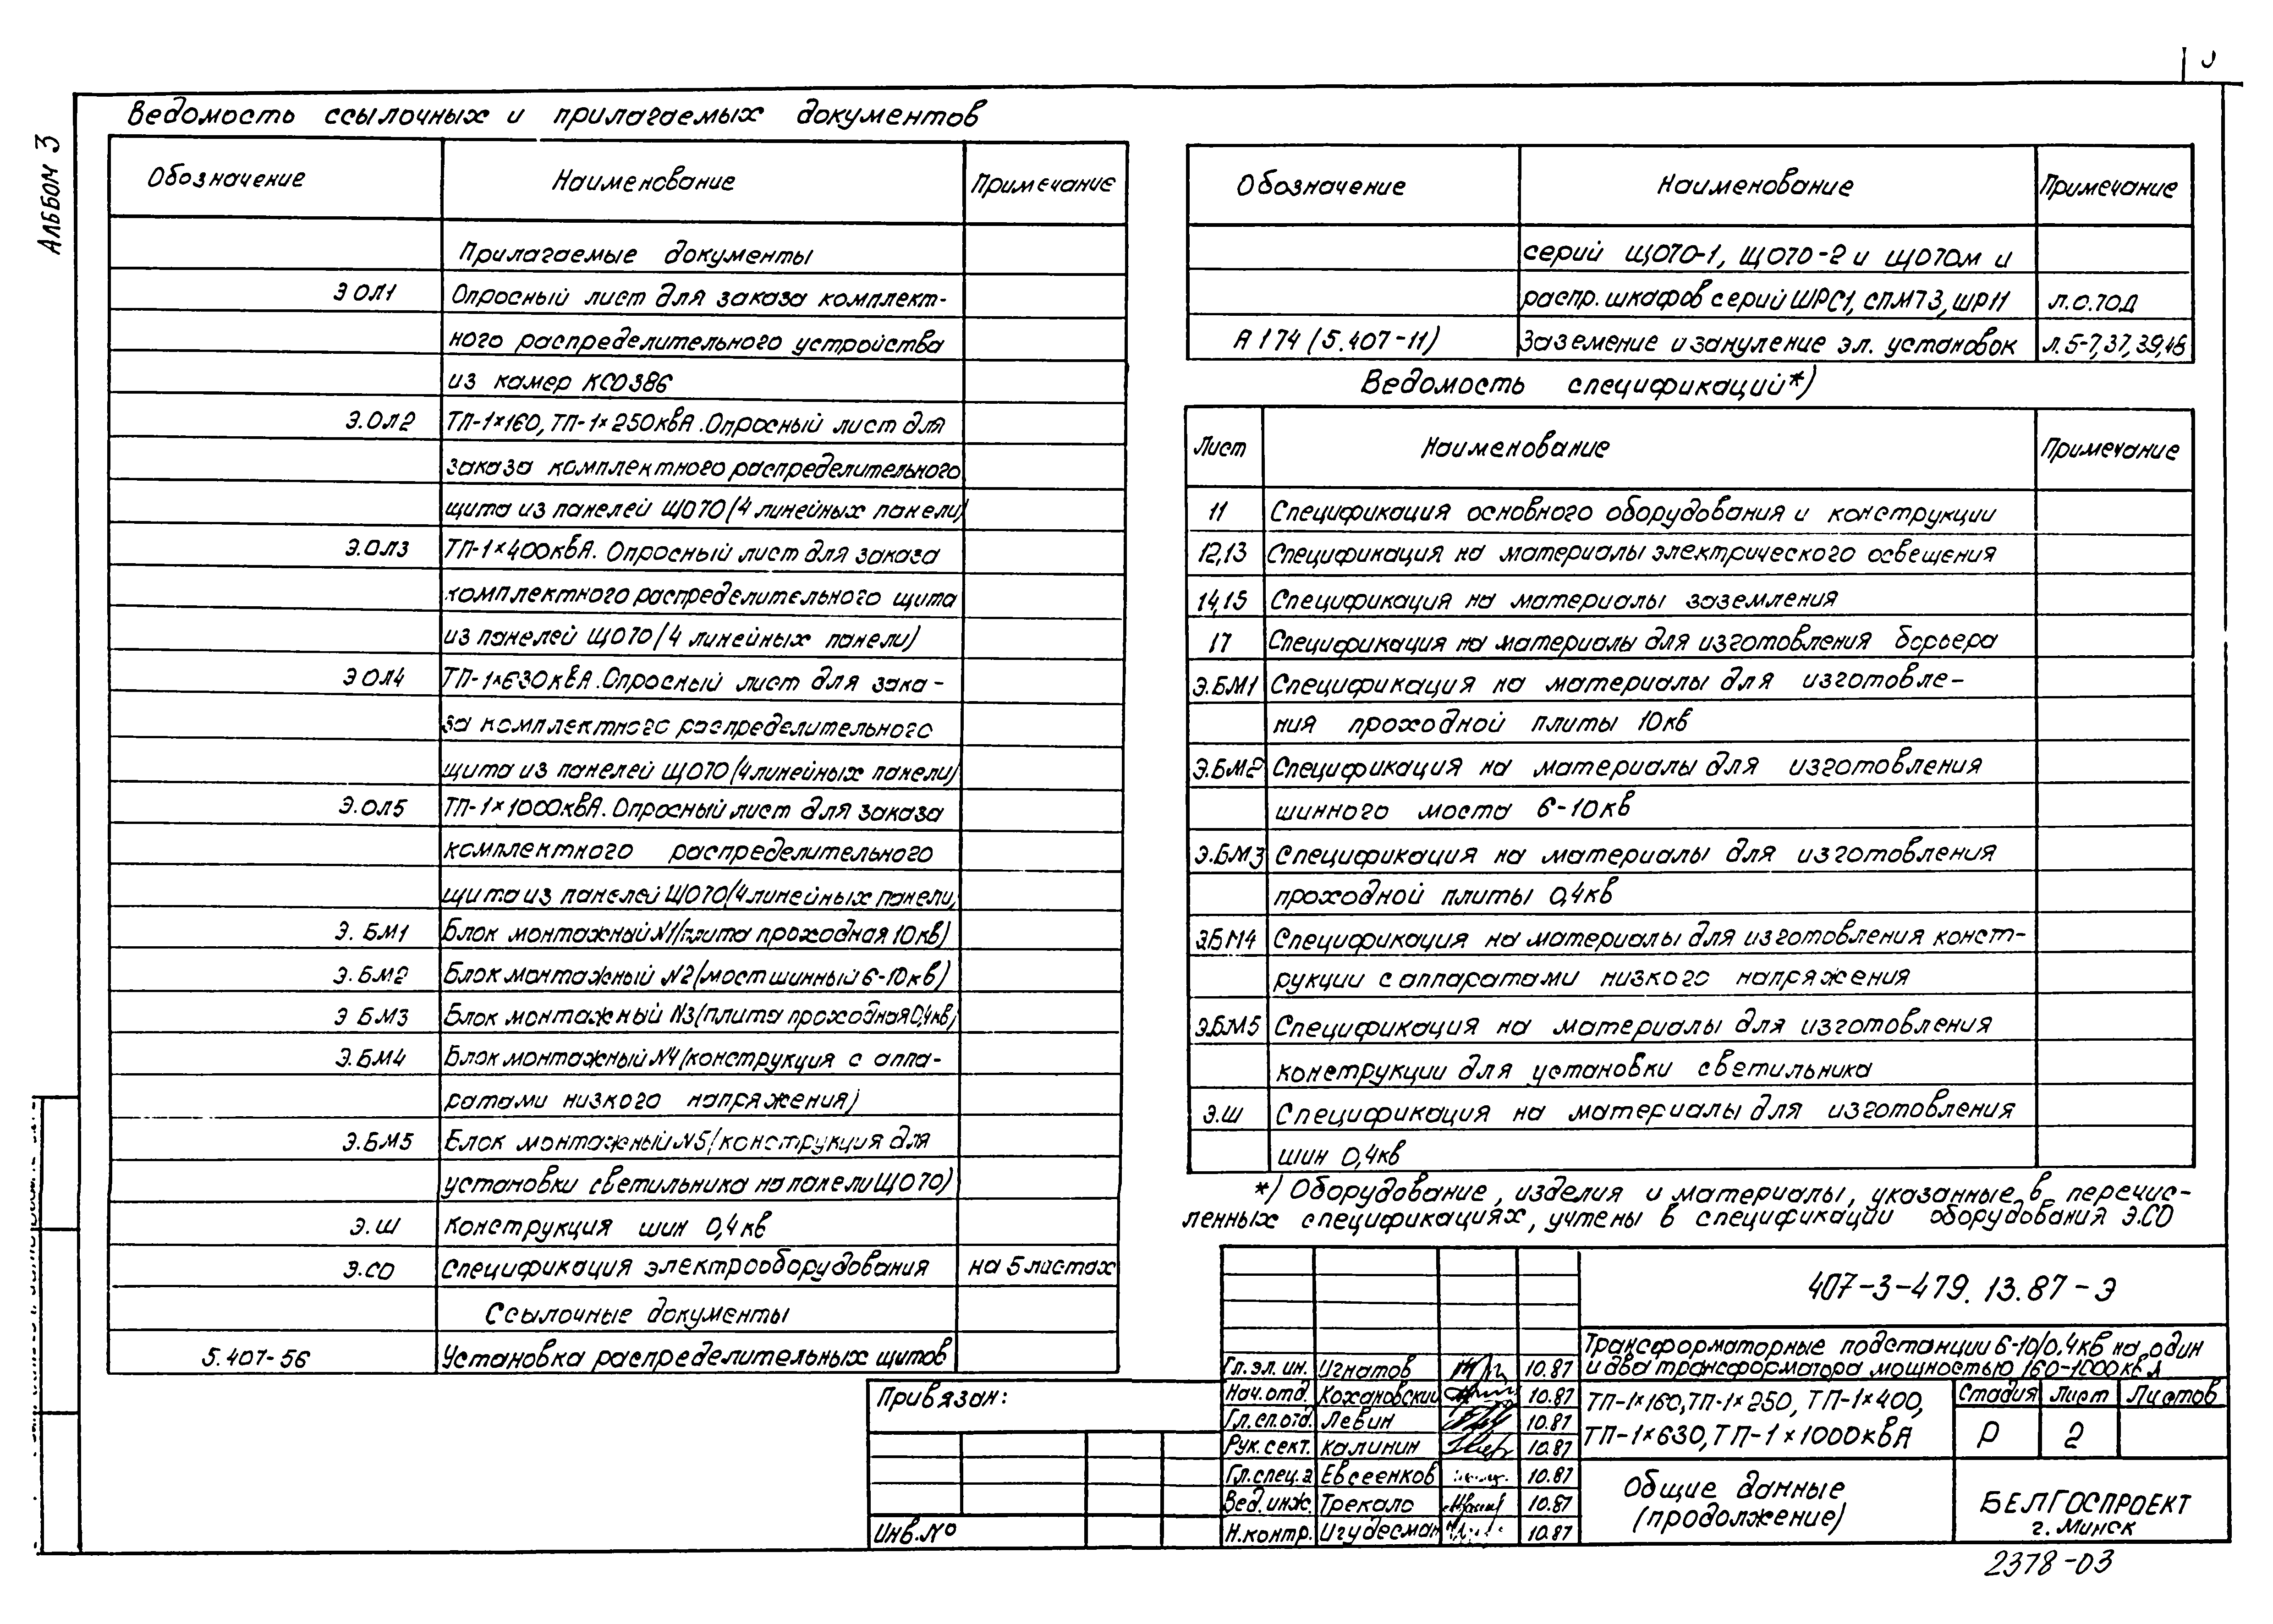 Альбом 3
Ведомость ссылочных и прилагаемых документов
Обозначение Наименование Примечание
Прилагаемые документы
Э ОЛ1 Опросный лист для заказа комплект-
ного распределительного устройства
из камер КСО386
Э.ОЛ2 ТП-1×160, ТП-1×250кВА. Опросный лист для
заказа комплектного распределительного
щита из панелей ЩО70 (4 линейных панели)
Э.ОЛ3 ТП-1×400кВА. Опросный лист для заказа
комплектного распределительного щита
из панелей ЩО70 (4 линейных панели)
Э ОЛ4 ТП-1×630кВА. Опросный лист для зака-
за комплектного распределительного
щита из панелей ЩО70 (4 линейных панели)
Э.ОЛ5 ТП-1×1000кВА. Опросный лист для заказа
комплектного распределительного
щита из панелей ЩО70 (4 линейных панели)
Э. БМ1 Блок монтажный N1 (плита проходная 10кв)
Э. БМ2 Блок монтажный N2 (мост шинный 6-10кв)
Э БМ3 Блок монтажный N3 (плита проходная 0,4кв)
Э.БМ4 Блок монтажный N4 (конструкция с аппа-
ратами низкого напряжения)
Э.БМ5 Блок монтажный N5 (конструкция для
установки светильника на панели ЩО70)
Э.Ш Конструкция шин 0,4кв
Э.СО Спецификация электрооборудования на 5 листах
Ссылочные документы
5.407-56 Установка распределительных щитов
Обозначение Наименование Примечание
серий ЩО70-1, ЩО70-2 и ЩО70м и
распр. шкафов серий ШРС1, СПМ73, ШР11 л.о.тод
А174 (5.407-11) Заземение и зануление эл. установок л.5-7,37,39,46
Ведомость спецификаций*)
Лист Наименование Примечание
11 Спецификация основного оборудования и конструкции
12,13 Спецификация на материалы электрического освещения
14,15 Спецификация на материалы заземления
17 Спецификация на материалы для изготовления борьера
Э.БМ1 Спецификация на материалы для изготовле-
ния проходной плиты 10кв
Э.БМ2 Спецификация на материалы для изготовления
шинного моста 6-10кв
Э.БМ3 Спецификация на материалы для изготовления
проходной плиты 0,4кв
Э.БМ4 Спецификация на материалы для изготовления конст-
рукции с аппаратами низкого напряжения
Э.БМ5 Спецификация на материалы для изготовления
конструкции для установки светильника
Э.Ш Спецификация на материалы для изготовления
шин 0,4кв
*) Оборудование, изделия и материалы, указанные в перечис-
ленных спецификациях, учтены в спецификации оборудования Э.СО
407-3-479.13.87-Э
Трансформаторные подстанции 6-10/0,4кв на один
и два трансформатора мощностью 160-1000кВА
Гл.эл.ин. Игнатов 10.87
Нач.отд. Кохановский 10.87
Гл.сп.отд. Левин 10.87
Рук.сект. Калинин 10.87
Гл.спец.э Евсеенков 10.87
Вед.инж. Трекало 10.87
Н.контр. Игудесман 10.87
ТП-1×160, ТП-1×250, ТП-1×400,
ТП-1×630, ТП-1×1000кВА
Стадия Лист Листов
Р 2
Общие данные
(продолжение)
БЕЛГОСПРОЕКТ
г. Минск
Привязан:
Инв.№
2378-03